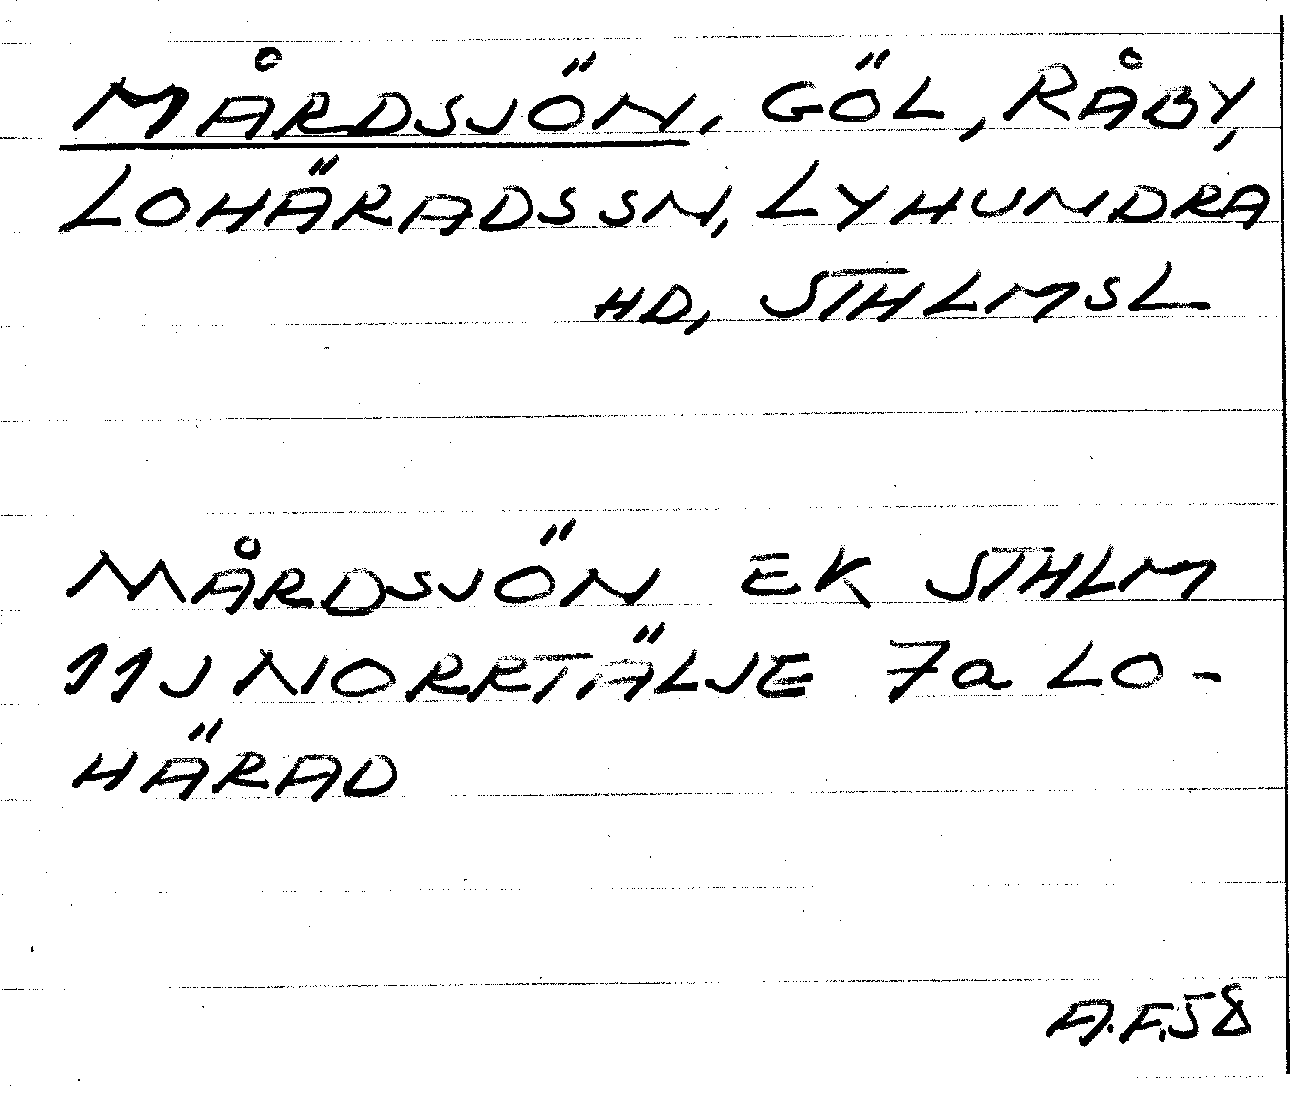 MÅRDSJÖN, GÖL, RÅBY,
LOHÄRADS SN, LYHUNDRA
HD, STHLMSL
MÅRDSJÖN EK STHLM
11J NORRTÄLJE 7a LO-
HÄRAD
A.F.58